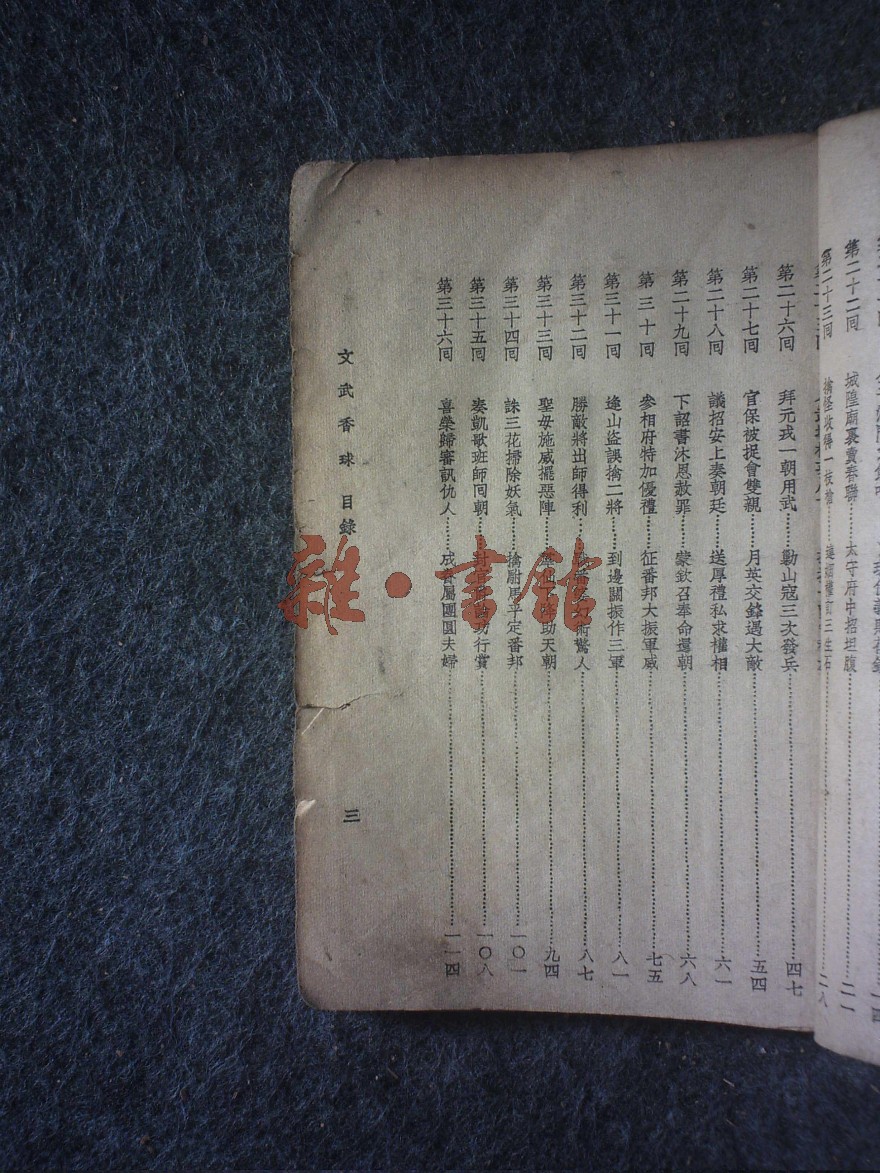 第二十二回 城隍廟裏賣春聯 太守府中招坦腹 二一
第二十三回 擒怪收得一枝槍 三生石 二八
第二十六回 拜元戎一朝用武 勦山寇三次發兵 四七
第二十七回 官保被捉會雙親 月英交鋒遇大敵 五四
第二十八回 議招安上奏朝廷 送厚禮私求權相 六一
第二十九回 下詔書沐恩赦罪 蒙欽召奉命還朝 六八
第三十回 參相府特加優禮 征番邦大振軍威 七五
第三十一回 逢山盜誤擒二將 到邊關振作三軍 八一
第三十二回 勝敵將出師得利 術驚人 八七
第三十三回 聖母施威擺惡陣 助天朝 九四
第三十四回 誅三花掃除妖氣 擒尉馬平定番邦 一〇一
第三十五回 奏凱歌班師回朝 功行賞 一〇八
第三十六回 喜榮歸審訊仇人 成眷屬團圓夫婦 一一四
文武香球 目錄
三
雜·書館